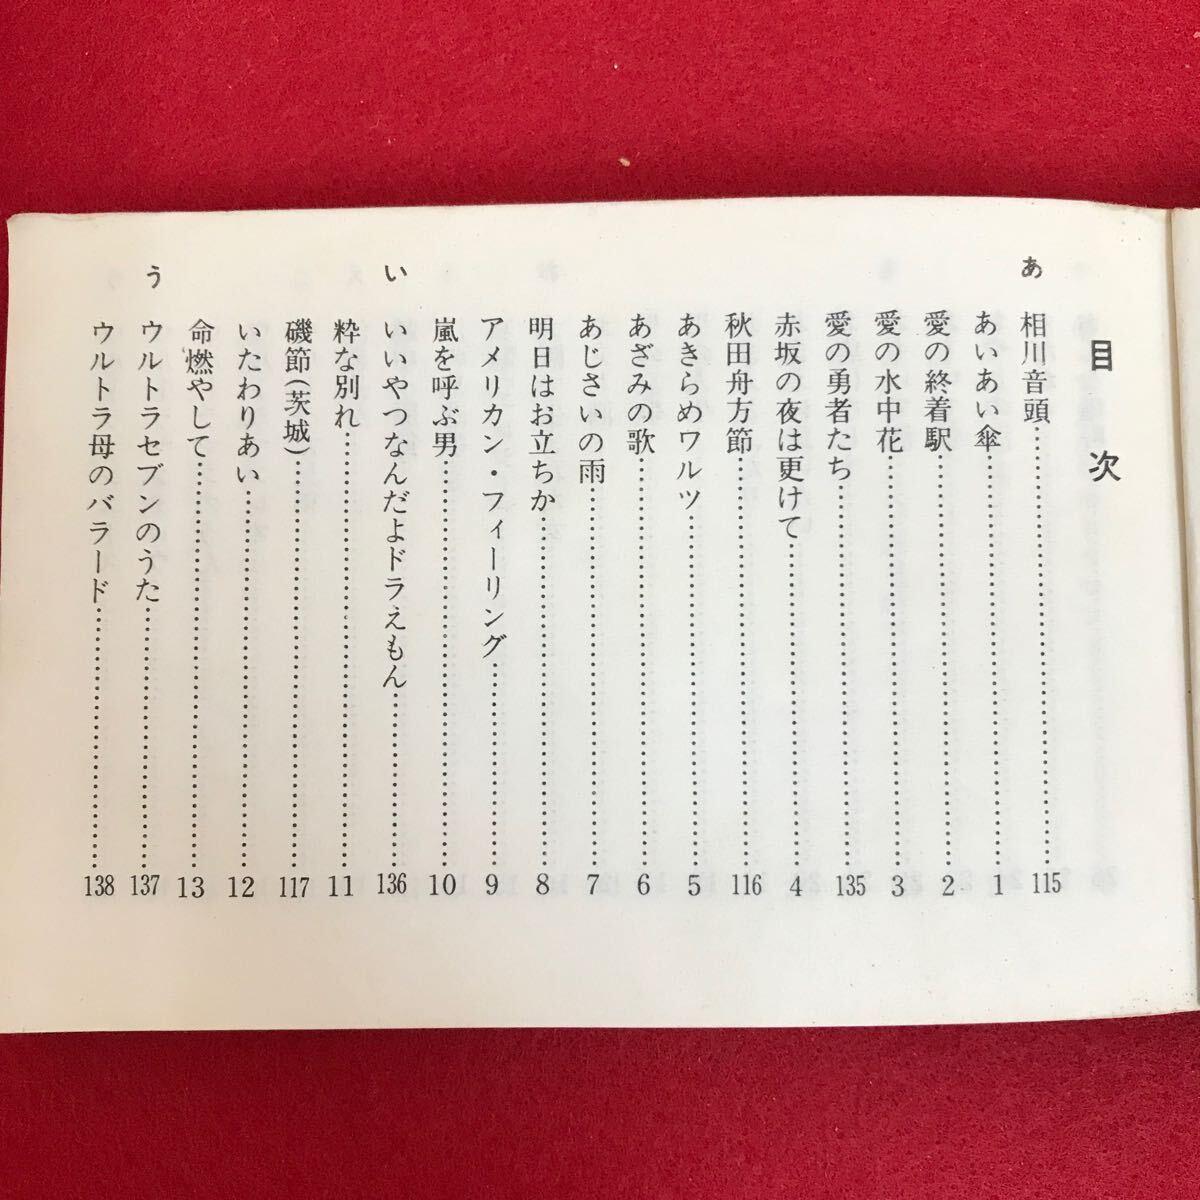 目次
あ
相川音頭……115
あいあい傘……1
愛の終着駅……2
愛の水中花……3
愛の勇者たち……135
赤坂の夜は更けて……4
秋田舟方節……116
あきらめワルツ……5
あざみの歌……6
あじさいの雨……7
明日はお立ちか……8
アメリカン・フィーリング……9
嵐を呼ぶ男……10
い
いいやつなんだよドラえもん……136
粋な別れ……11
磯節(茨城)……117
いたわりあい……12
命燃やして……13
う
ウルトラセブンのうた……137
ウルトラ母のバラード……138